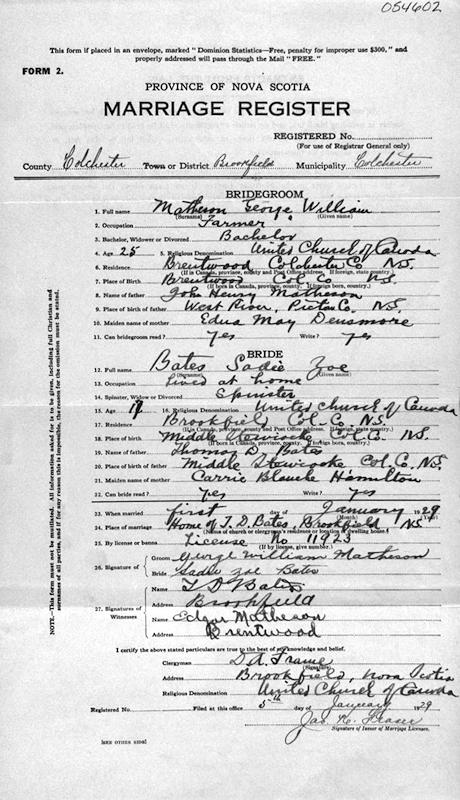 054602
This form if placed in an envelope, marked "Dominion Statistics—Free, penalty for improper use $300," and
properly addressed will pass through the Mail "FREE."
FORM 2.
PROVINCE OF NOVA SCOTIA
MARRIAGE REGISTER
REGISTERED No.
(For use of Registrar General only)
County Colchester Town or District Brookfield Municipality Colchester
BRIDEGROOM
1. Full name Matheson George William
(Surname) (Given name)
2. Occupation Farmer
3. Bachelor, Widower or Divorced Bachelor
4. Age 25 5. Religious Denomination United Church of Canada
6. Residence Brentwood Colchester Co. N.S.
(If in Canada, province, county and Post Office address. If foreign, state country.)
7. Place of Birth Brentwood Col. Co. N.S.
(If born in Canada, province, county. If foreign born, country.)
8. Name of father John Henry Matheson
9. Place of birth of father West River, Pictou Co. N.S.
10. Maiden name of mother Edna May Densmore
11. Can bridegroom read? Yes Write? Yes
BRIDE
12. Full name Bates Sadie Zoe
(Surname) (Given name)
13. Occupation Lived at home
14. Spinster, Widow or Divorced Spinster
15. Age 19 16. Religious Denomination United Church of Canada
17. Residence Brookfield Col. Co. N.S.
(If in Canada, province, county and Post Office address. If foreign, state country.)
18. Place of birth Middle Stewiacke Col. Co. N.S.
(If born in Canada, province, county. If foreign born, country.)
19. Name of father Thomas D. Bates
20. Place of birth of father Middle Stewiacke Col. Co. N.S.
21. Maiden name of mother Carrie Blanche Hamilton
22. Can bride read? Yes Write? Yes
23. When married first day of January 1929
(Month) (Year)
24. Place of marriage Home of T. D. Bates, Brookfield N.S.
(Name of church or clergyman's residence or location of dwelling house.)
25. By license or banns License No 11923
(If by license, give number.)
26. Signature of
Groom George William Matheson
Bride Sadie Zoe Bates
27. Signatures of Witnesses
Name T D Bates
Address Brookfield
Name Edgar Matheson
Address Brentwood
I certify the above stated particulars are true to the best of my knowledge and belief.
Clergyman D. A. Frame
(Signature)
Address Brookfield, Nova Scotia
Religious Denomination United Church of Canada
Registered No. Filed at this office 5th day of January 1929
Jas. K. Fraser
Signature of Issuer of Marriage Licenses.
[SEE OTHER SIDE]
NOTE.—This form must not be mutilated. All information asked for is to be given, including full Christian and
surnames of all parties, and if for any reason this is impossible, the reason for the omission must be stated.